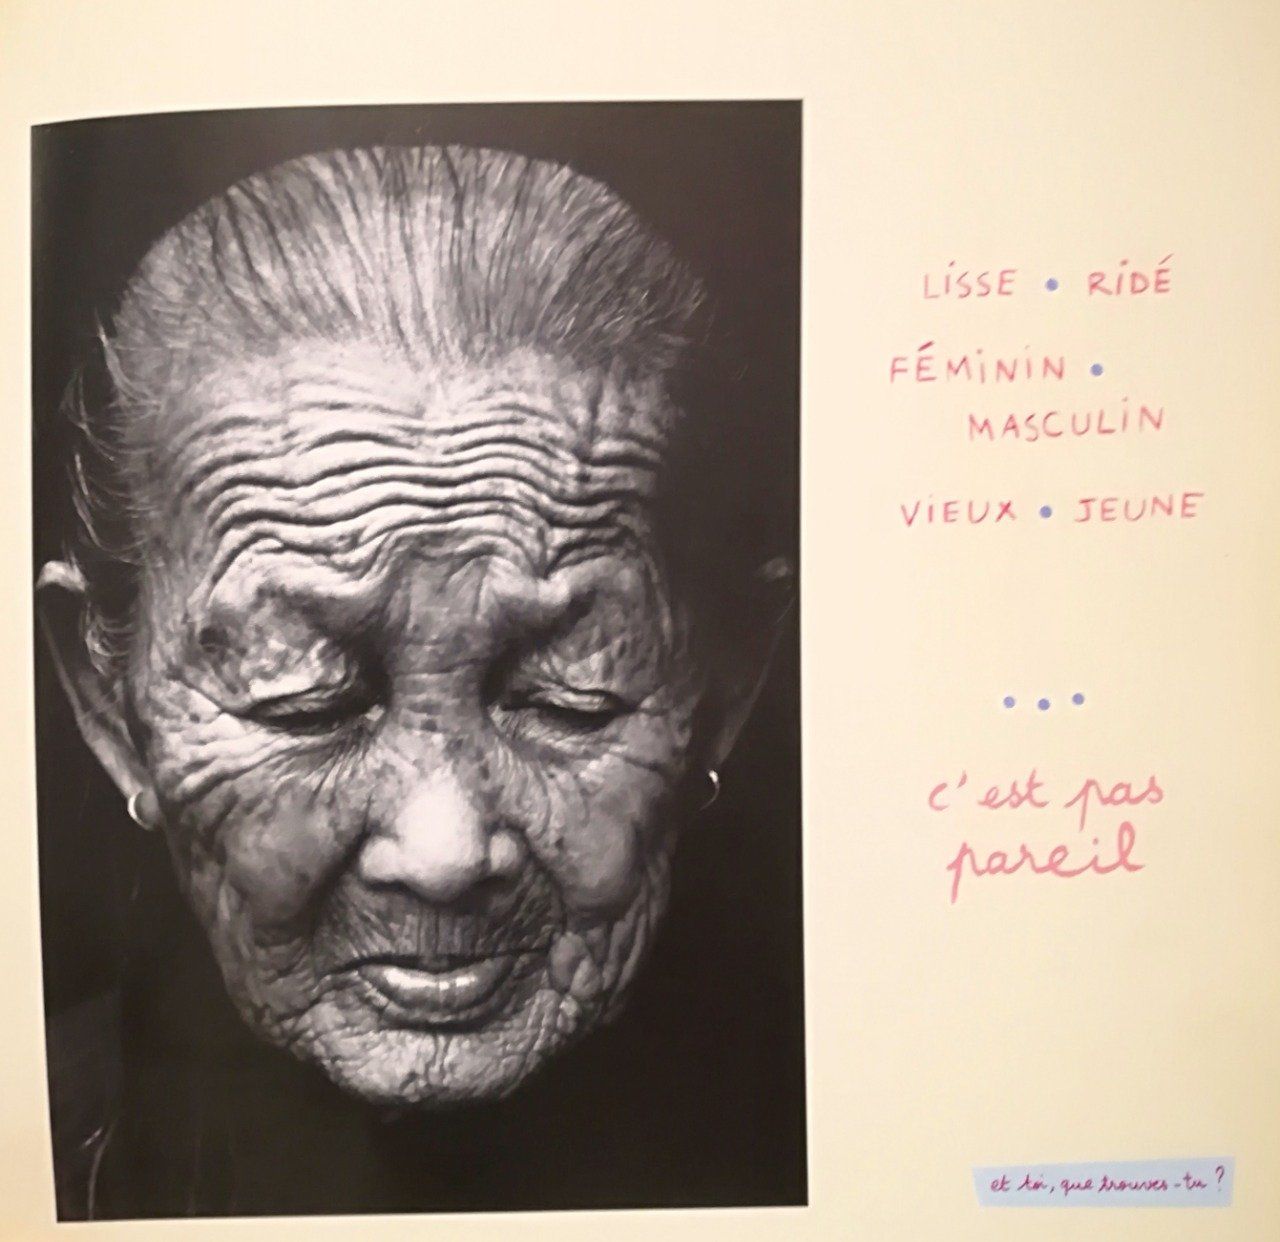 LiSSE • RiDÉ
FÉMiNiN •
MASCULiN
ViEUX • JEUNE
• • •
c'est pas
pareil
et toi, que trouves-tu ?